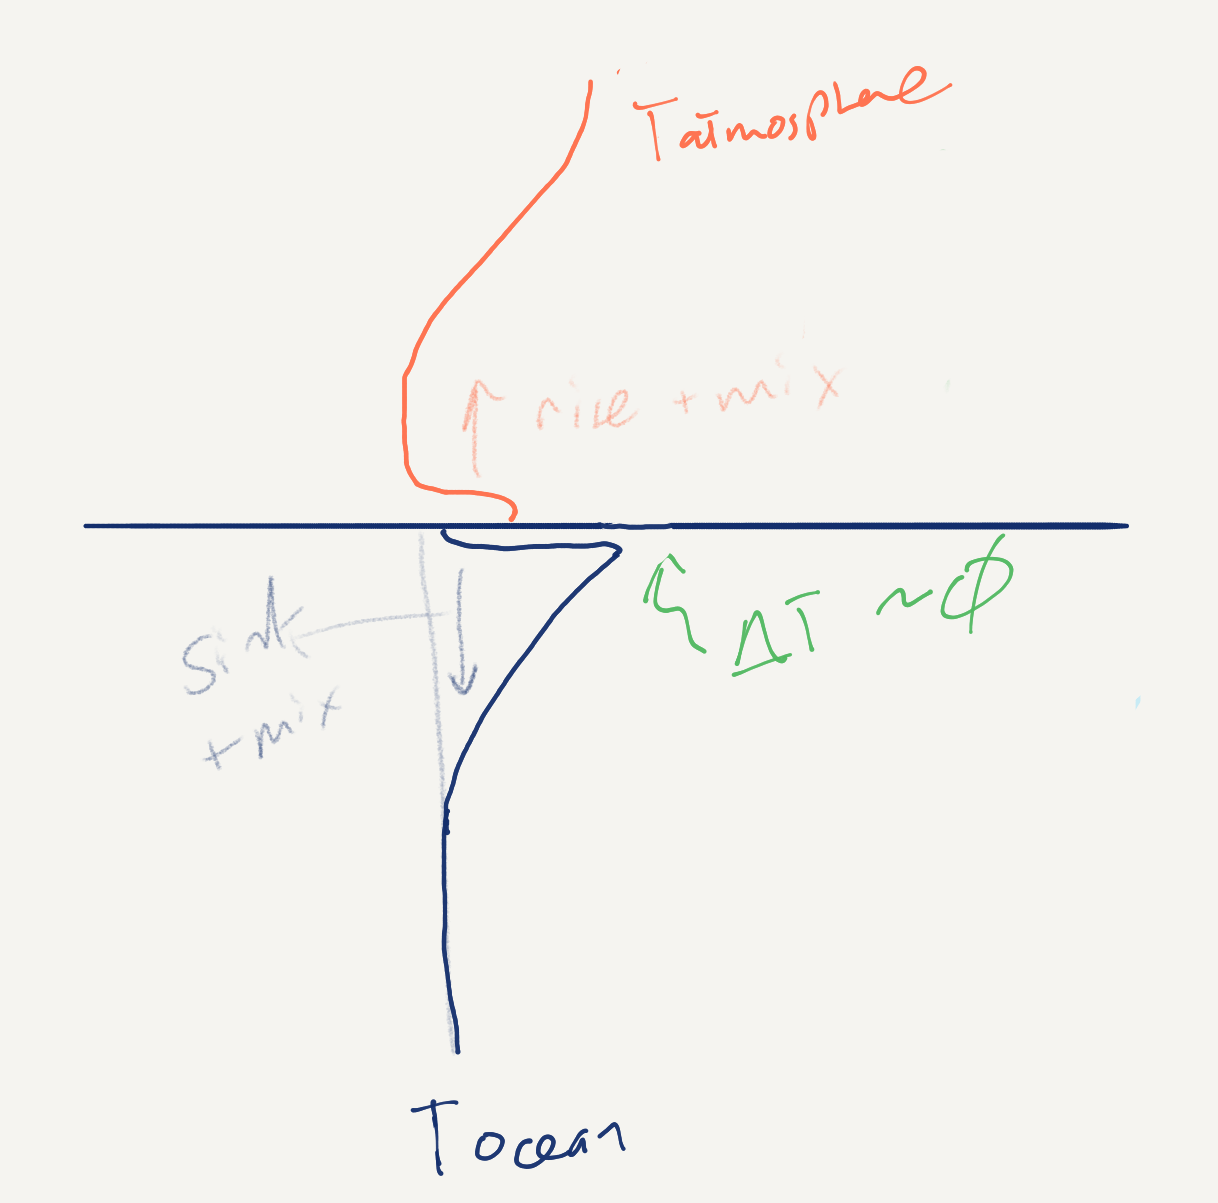 Tatmosphere
↑ rise + mix
ΔT ~ Φ
Sink
+ mix
T ocean